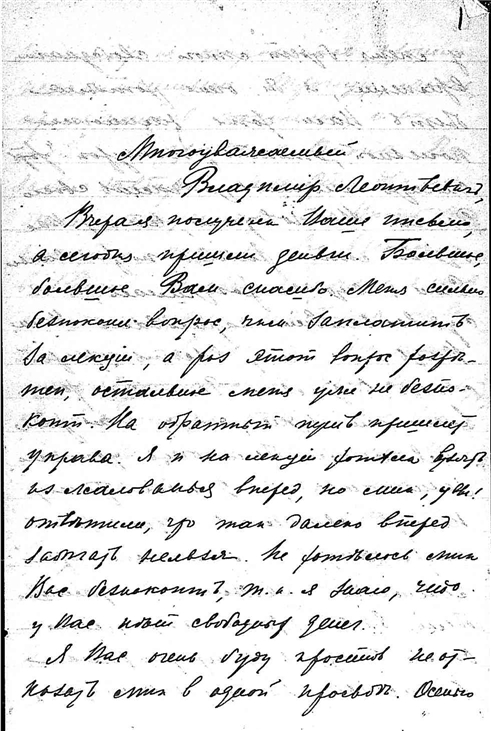 1
Многоуважаемый
Владимір Леонтьевич,
Вчера я получила Ваше письмо,
а сегодня пришли деньги. Большое,
большое Вам спасибо. Меня сильно
безпокоил вопрос, чем заплатить
за лекции, а раз этот вопрос разрѣ-
шен, остальное меня уже не безпо-
коит. На обратный путь пришлет
управа. Я и на лекции хотела взять
из жалованья вперед, но мне, увы!
ответили, что так далеко вперед
забегать нельзя. Не хотѣлось мне
Вас безпокоить, т. к. я знаю, что
у Вас нѣт свободных денег.
Я Вас очень буду просить не от-
казать мне в одной просьбѣ. Осенью